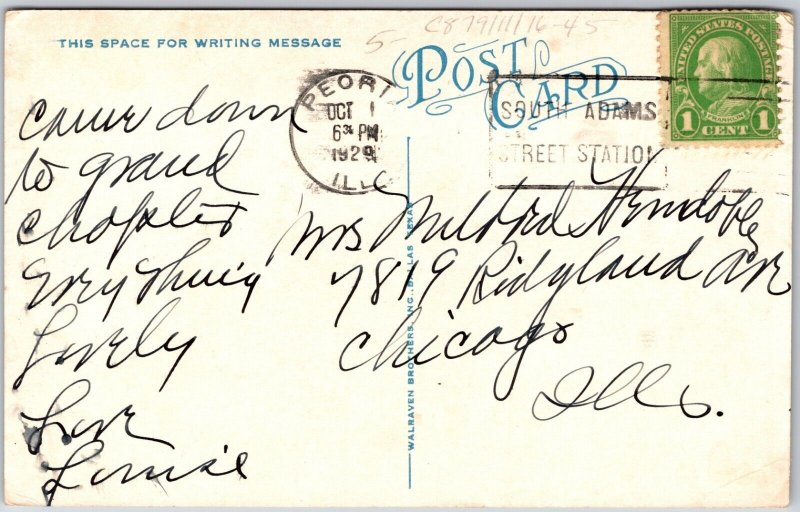 THIS SPACE FOR WRITING MESSAGE
5- C879/11/16-45
POST CARD
PEORI
OCT 1
6 30 PM
1929
ILL
SOUTH ADAMS
STREET STATION
UNITED STATES POSTAGE
FRANKLIN
1 CENT 1
Came down
to grand
chapter
Everything
Lovely
Love
Louise
Mrs Mildred
7819 Ridgland Ave
Chicago
Ills.
WALRAVEN BROTHERS, INC., DALLAS, TEXAS